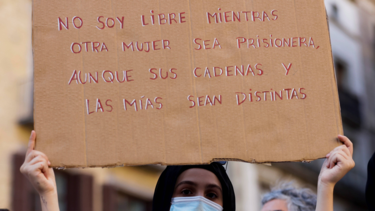 NO SOY LIBRE MIENTRAS
OTRA MUJER SEA PRISIONERA,
AUNQUE SUS CADENAS Y
LAS MÍAS SEAN DISTINTAS